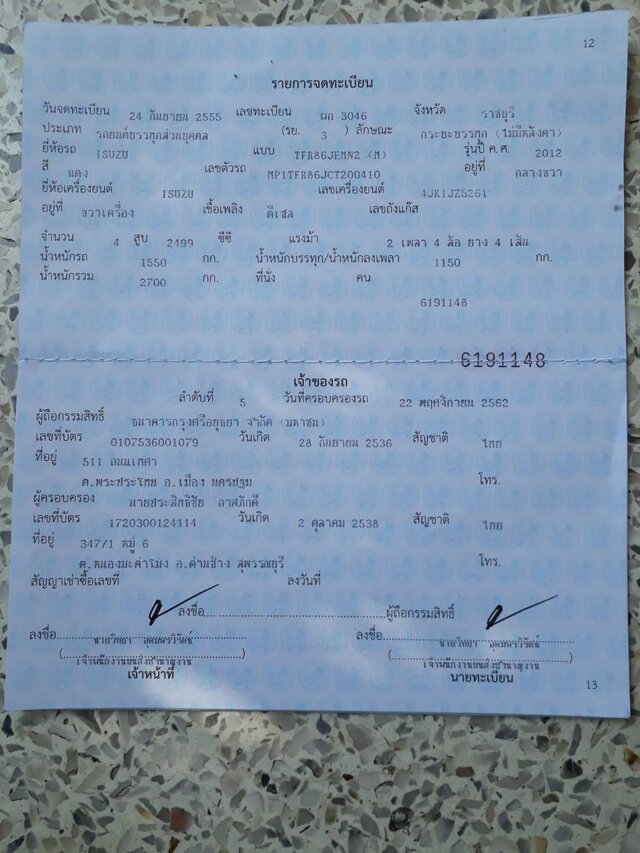 12
รายการจดทะเบียน
วันจดทะเบียน 24 กันยายน 2555 เลขทะเบียน ผก 3046 จังหวัด ราชบุรี
ประเภท รถยนต์บรรทุกส่วนบุคคล (รย. 3 ) ลักษณะ กระบะบรรทุก (ไม่มีหลังคา)
ยี่ห้อรถ ISUZU แบบ TFR86JEMN2 (M) รุ่นปี ค.ศ. 2012
สี แดง เลขตัวรถ MP1TFR86JCT200410 อยู่ที่ กลางขวา
ยี่ห้อเครื่องยนต์ ISUZU เลขเครื่องยนต์ 4JK1JZ5261
อยู่ที่ ขวาเครื่อง เชื้อเพลิง ดีเซล เลขถังแก๊ส
จำนวน 4 สูบ 2499 ซีซี แรงม้า 2 เพลา 4 ล้อ ยาง 4 เส้น
น้ำหนักรถ 1550 กก. น้ำหนักบรรทุก/น้ำหนักลงเพลา 1150 กก.
น้ำหนักรวม 2700 กก. ที่นั่ง คน
6191148
6191148
เจ้าของรถ
ลำดับที่ 5 วันที่ครอบครองรถ 22 พฤศจิกายน 2562
ผู้ถือกรรมสิทธิ์ ธนาคารกรุงศรีอยุธยา จำกัด (มหาชน)
เลขที่บัตร 0107536001079 วันเกิด 28 กันยายน 2536 สัญชาติ ไทย
ที่อยู่ 511 ถนนเทศา
ต.พระประโทน อ.เมือง นครปฐม โทร.
ผู้ครอบครอง นายประสิทธิชัย กาฬภักดี
เลขที่บัตร 1720300124114 วันเกิด 2 ตุลาคม 2538 สัญชาติ ไทย
ที่อยู่ 347/1 หมู่ 6
ต.หนองมะค่าโมง อ.ด่านช้าง สุพรรณบุรี โทร.
สัญญาเช่าซื้อเลขที่ ลงวันที่
ลงชื่อ ผู้ถือกรรมสิทธิ์
ลงชื่อ นายวิทยา ลงชื่อ นายวิทยา
(เจ้าพนักงานขนส่งชำนาญงาน) (เจ้าพนักงานขนส่งชำนาญงาน)
เจ้าหน้าที่ นายทะเบียน
13